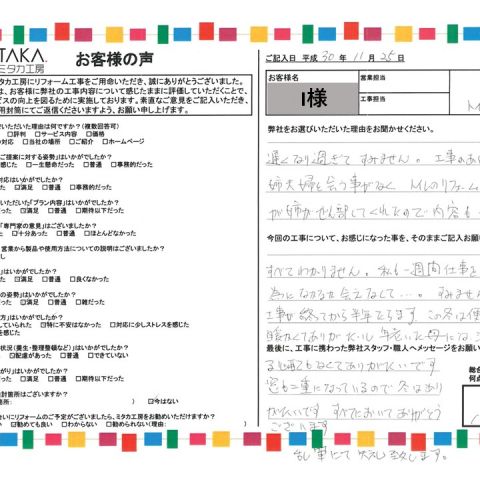 TAKA.
ミタカ工房
お客様の声
タカ工房にリフォーム工事をご用命いただき、誠にありがとうございました。
は、お客様に弊社の工事内容について感じたままに評価していただくことで、
ビスの向上を図るために実施しております。素直なご意見をご記入いただき、
用封筒にてご返信くださいますよう、お願い申し上げます。
いただいた理由は何ですか?(複数回答可)
□評判 □サービス内容 □価格
の対応 □当社の場所 □ご紹介 □ホームページ
ご提案に対する姿勢」はいかがでしたか?
感じた □一生懸命だった □普通 □事務的だった
対応はいかがでしたか?
った ☑満足 □普通 □事務的だった
いただいた「プラン内容」はいかがでしたか?
った ☑満足 □普通 □期待以下だった
「専門家の意見」はございましたか?
た □十分あった □普通 □ほとんどなかった
営業から製品や使用方法についての説明はございましたか?
し
」はいかがでしたか?
った ☑満足 □普通 □良くなかった
の姿勢」はいかがでしたか?
った ☑満足 □普通 □雑だった
方」はいかがでしたか?
していられた □特に不安はなかった □対応に少しストレスを感じた
状況(養生・整理整頓など)」はいかがでしたか?
□配慮があった □普通 □できていない
がり」はいかがでしたか?
った □満足 □普通 □期待以下だった
□今はない
せいにリフォームのご予定がございましたら、ミタカ工房をお勧めいただけますか?
い □勧めても良い □わからない □勧められない(理由:
ご記入日 平成 30 年 11 月 25 日
お客様名
I様
営業担当
工事担当
弊社をお選びいただいた理由をお聞かせください。
遅くなり過ぎて すみません。工事のお
姉夫婦と会う事がなく
が姉が全部してくれたので 内容も
今回の工事について、お感じになった事を、そのままご記入お願
すべてわかりません。私も一週間仕事を
すみません
工事が終ってから半年たちます この冬は
暖かくてありがたいし 年老いた母になる
最後に、工事に携わった弊社スタッフ・職人へメッセージをお願い
る心配もなくてありがたいです
窓も二重になっているので 冬はあり
がたいです すべてにおいて ありがとう
ございます
乱筆にて 失礼致します。
総合
何点